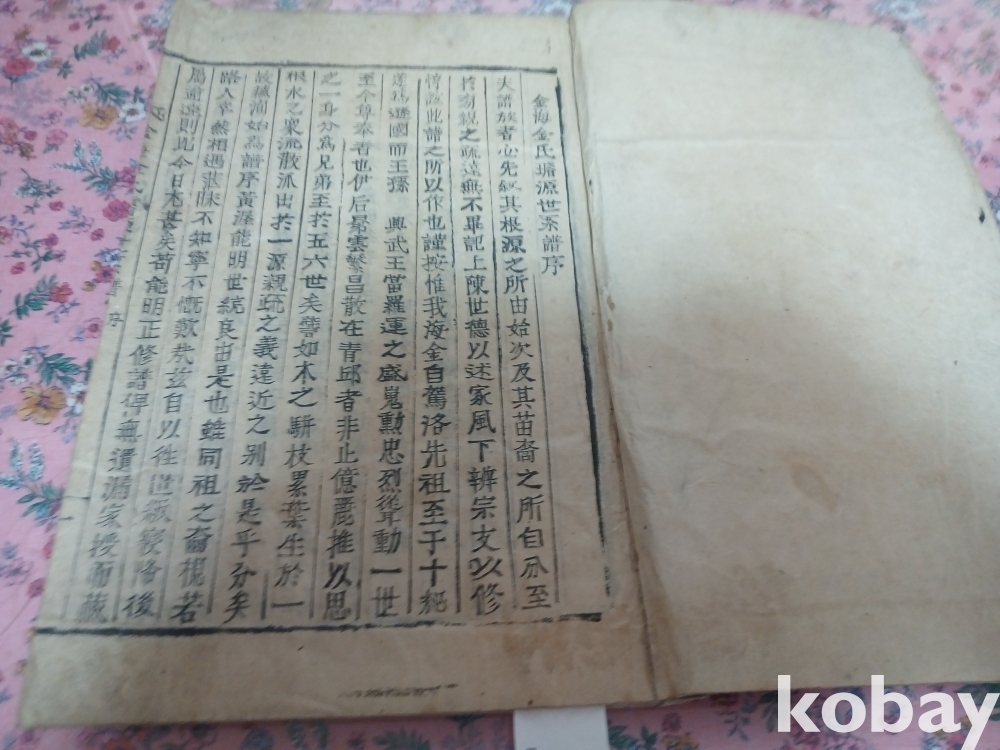 金海金氏璿源世系譜序
夫譜族者必先叙其根源之所由始次及其苗裔之所自分至
於親之疏遠無不畢記上陳世德以述家風下辨宗支以修
惇此譜之所以作也謹按惟我海金自駕洛先祖至于十紀
遜國而王孫 興武王當羅運之盛嵬勳忠烈聳動一世
至今尊奉者也伊后昴雲繁昌散在青邱者非止億麗推以思
之一身分爲兄弟至於五六世矣譬如木之駢枝累葉生於一
根水之衆流散派出於一源親疏之義遠近之別於是乎分矣
故蘓洵始爲譜序黃渥能明世統良由是也雖同祖之裔視若
路人卒然相遇茫昧不知寧不慨歎哉玆自以往世級寢降後
屬逾遠則比今日尤甚矣苟能明正修譜俾無遺漏家授而藏
序
kobay